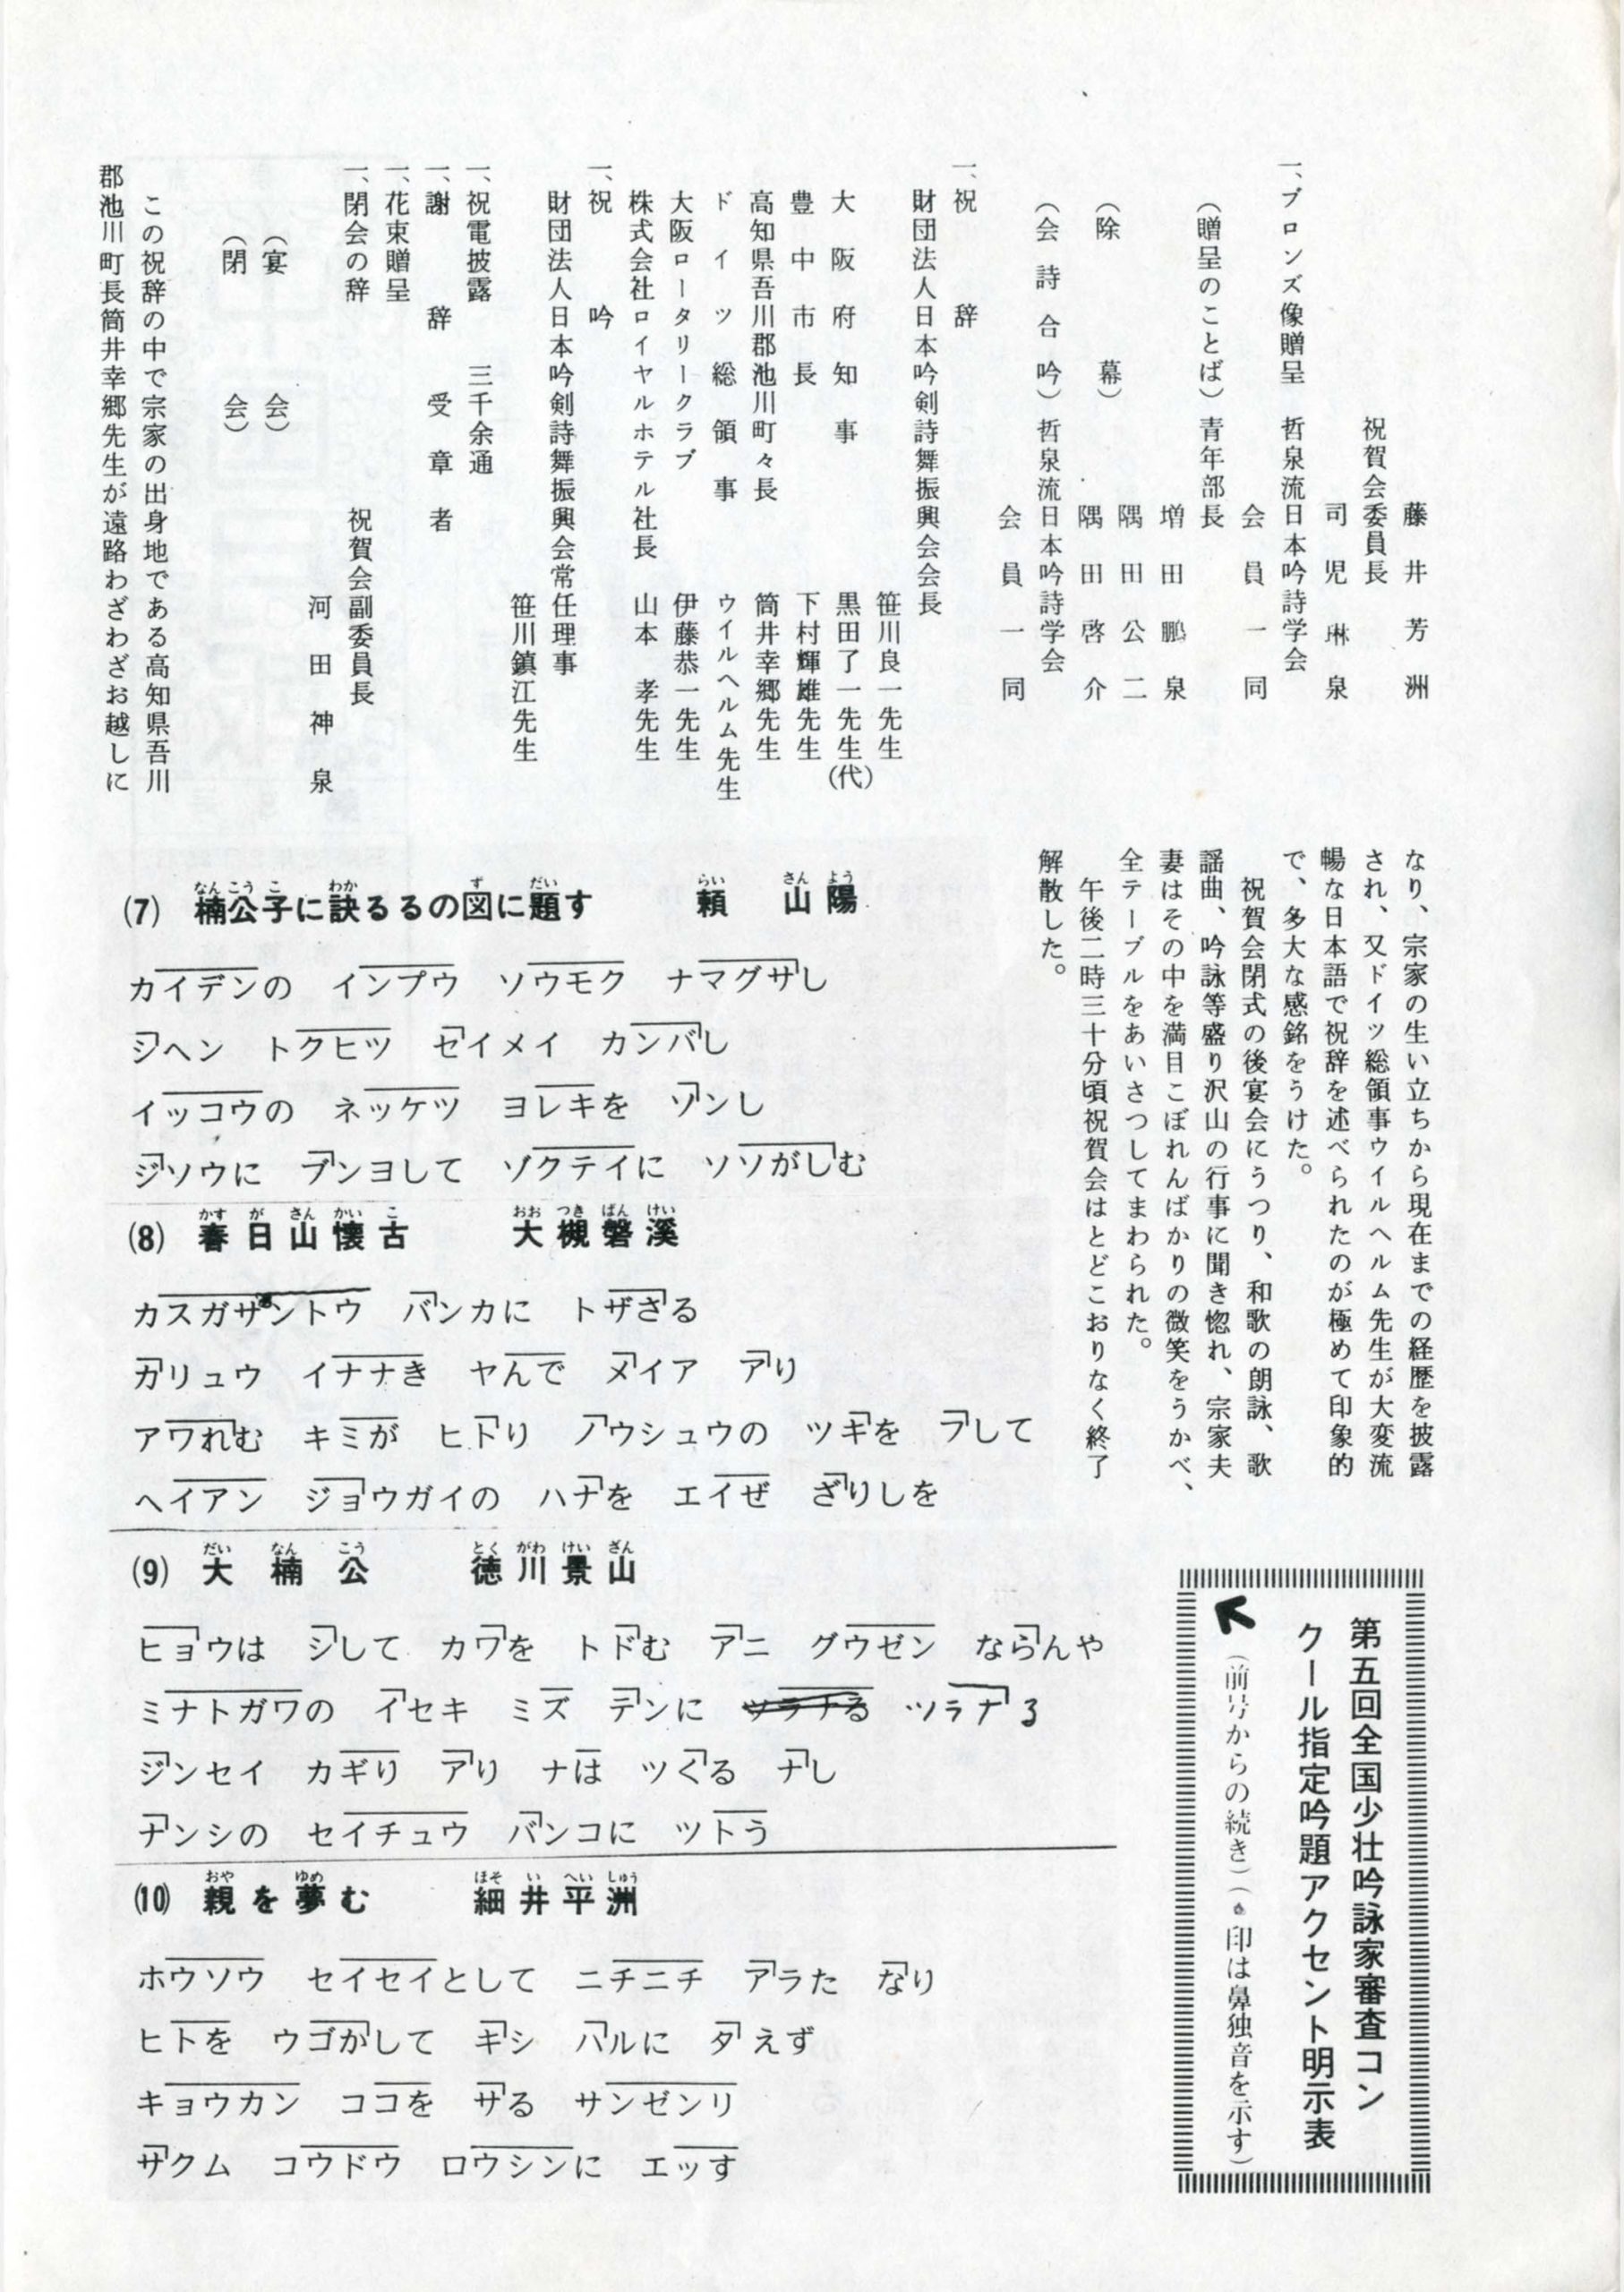 藤井芳洲
祝賀会委員長
司児琳泉
一、ブロンズ像贈呈　哲泉流日本吟詩学会
会員一同
（贈呈のことば）青年部長
増田鵬泉
隅田公二
（除幕）
隅田啓介
（会詩合吟）哲泉流日本吟詩学会
会員一同
一、祝辞
財団法人日本吟剣詩舞振興会会長
笹川良一先生
大阪府知事　黒田了一先生（代）
豊中市長　下村輝雄先生
高知県吾川郡池川町々長　筒井幸郷先生
ドイツ総領事　ウイルヘルム先生
大阪ロータリークラブ　伊藤恭一先生
株式会社ロイヤルホテル社長　山本孝先生
一、祝吟
財団法人日本吟剣詩舞振興会常任理事
笹川鎮江先生
一、祝電披露　三千余通
一、謝辞　受章者
一、花束贈呈
一、閉会の辞　祝賀会副委員長
河田神泉
（宴会）
（閉会）
この祝辞の中で宗家の出身地である高知県吾川
郡池川町長筒井幸郷先生が遠路わざわざお越しに
なり、宗家の生い立ちから現在までの経歴を披露
され、又ドイツ総領事ウイルヘルム先生が大変流
暢な日本語で祝辞を述べられたのが極めて印象的
で、多大な感銘をうけた。
祝賀会閉式の後宴会にうつり、和歌の朗詠、歌
謡曲、吟詠等盛り沢山の行事に聞き惚れ、宗家夫
妻はその中を満目こぼれんばかりの微笑をうかべ、
全テーブルをあいさつしてまわられた。
午後二時三十分頃祝賀会はとどこおりなく終了
解散した。
第五回全国少壮吟詠家審査コン
クール指定吟題アクセント明示表
（前号からの続き）（　印は鼻独音を示す）
(7)　楠公子に訣るるの図に題す　頼山陽
カイデンの　インプウ　ソウモク　ナマグサし
シヘン　トクヒツ　セイメイ　カンバし
イッコウの　ネッケツ　ヨレキを　ソンし
ジソウに　ブンヨして　ゾクテイに　ソソがしむ
(8)　春日山懐古　大槻磐溪
カスガザントウ　バンカに　トザさる
カリュウ　イナナき　ヤんで　メイア　アり
アワれむ　キミが　ヒトり　ノウシュウの　ツギを　フして
ヘイアン　ジョウガイの　ハナを　エイぜ　ざりしを
(9)　大楠公　徳川景山
ヒョウは　シして　カワを　トドむ　アニ　グウゼン　ならんや
ミナトガワの　イセキ　ミズ　テンに　ツラナる　ツラナる
ジンセイ　カギり　アり　ナは　ツくる　ナし
ナンシの　セイチュウ　バンコに　ツトう
(10)　親を夢む　細井平洲
ホウソウ　セイセイとして　ニチニチ　アラた　なり
ヒトを　ウゴかして　キシ　ハルに　タえず
キョウカン　ココを　サる　サンゼンリ
サクム　コウドウ　ロウシンに　エッす